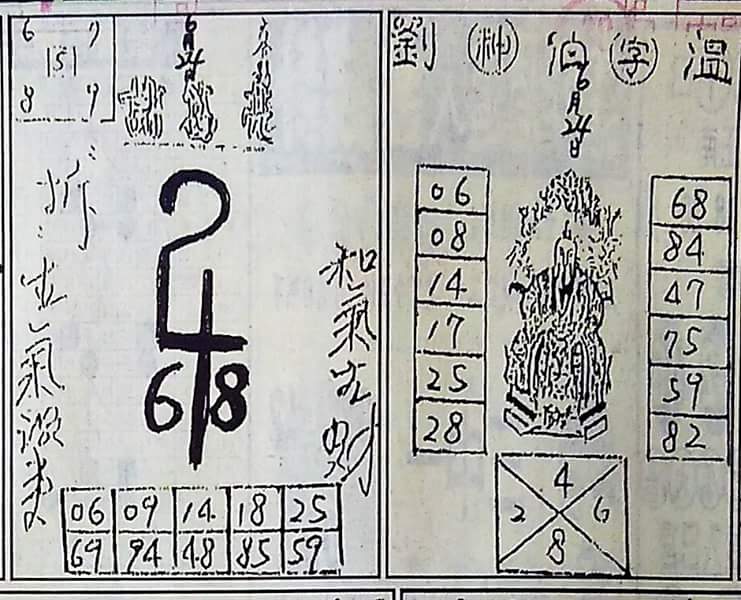 6 7
5
8 9
6月24日
和氣生財
6 8
06 09 14 18 25
69 94 48 85 59
劉 沖 泊 字 溫
6月24日
06
08
14
17
25
28
68
84
47
75
59
82
4
2 6
8